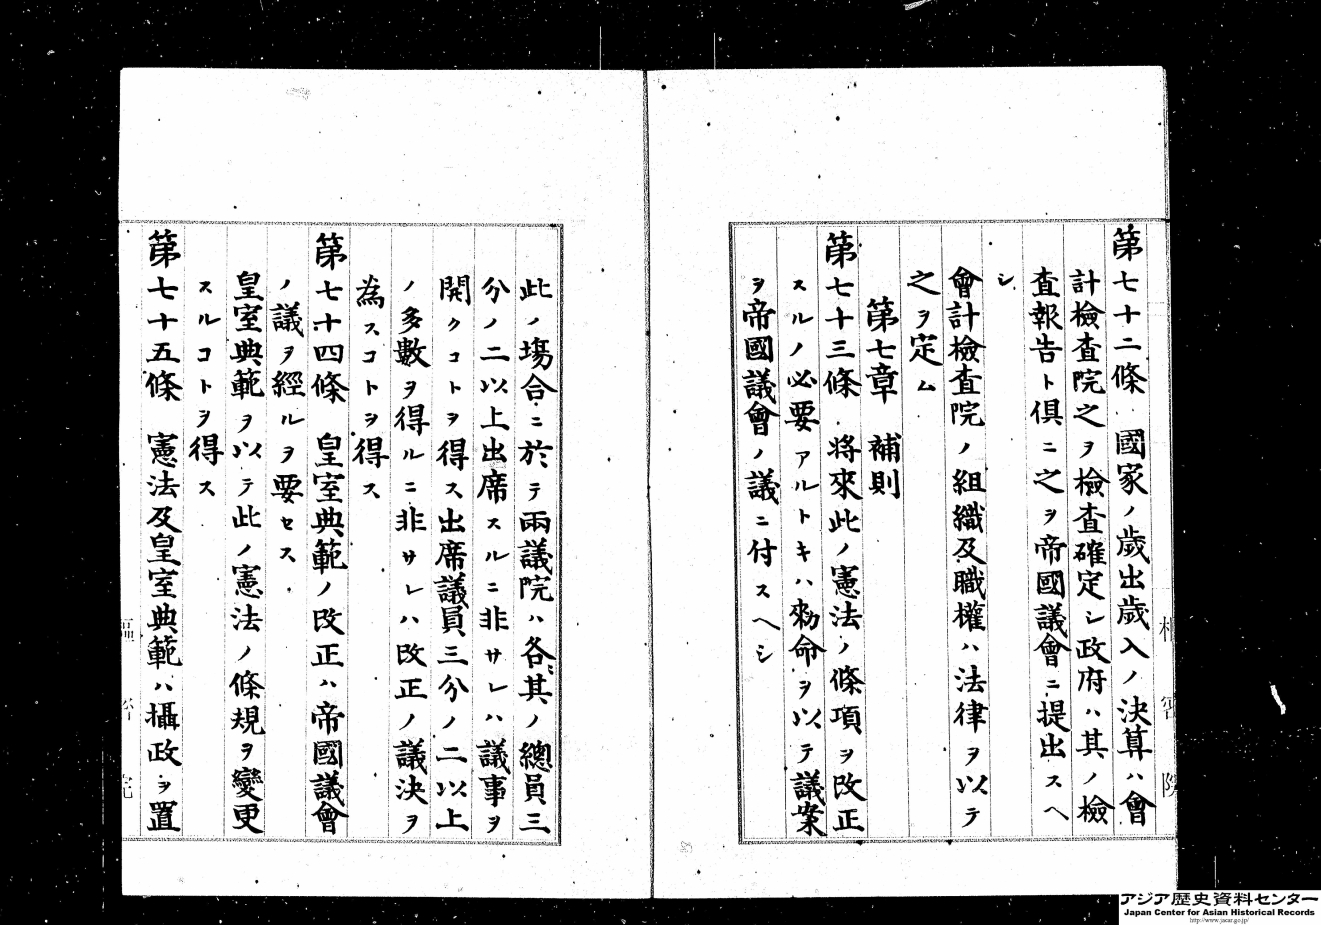 第七十二條　國家ノ歲出歲入ノ決算ハ會
計檢査院之ヲ檢査確定シ政府ハ其ノ檢
査報告ト俱ニ之ヲ帝國議會ニ提出スヘ
シ
會計檢査院ノ組織及職權ハ法律ヲ以テ
之ヲ定ム
第七章　補則
第七十三條　將來此ノ憲法ノ條項ヲ改正
スルノ必要アルトキハ勅命ヲ以テ議案
ヲ帝國議會ノ議ニ付スヘシ
此ノ場合ニ於テ兩議院ハ各其ノ總員三
分ノ二以上出席スルニ非サレハ議事ヲ
開クコトヲ得ス出席議員三分ノ二以上
ノ多數ヲ得ルニ非サレハ改正ノ議決ヲ
為スコトヲ得ス
第七十四條　皇室典範ノ改正ハ帝國議會
ノ議ヲ經ルヲ要セス
皇室典範ヲ以テ此ノ憲法ノ條規ヲ變更
スルコトヲ得ス
第七十五條　憲法及皇室典範ハ攝政ヲ置
アジア歴史資料センター
Japan Center for Asian Historical Records
http://www.jacar.go.jp/